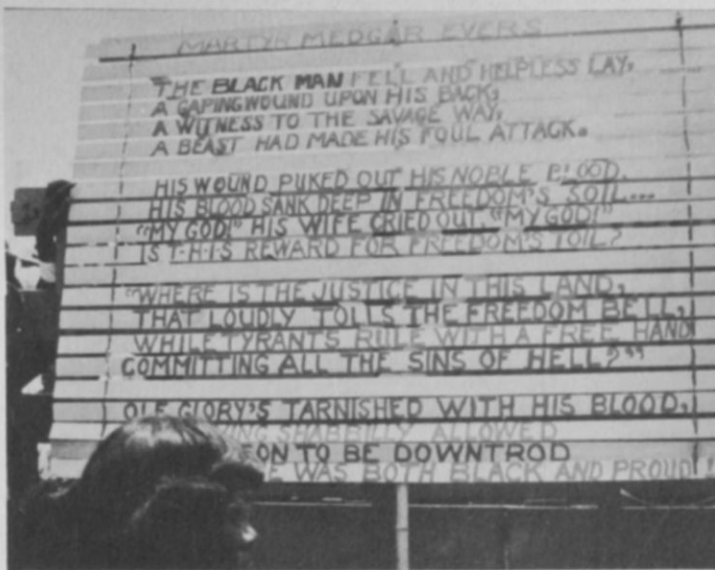 MARTYR MEDGAR EVERS
"THE BLACK MAN FELL AND HELPLESS LAY,
A GAPING WOUND UPON HIS BACK,
A WITNESS TO THE SAVAGE WAY,
A BEAST HAD MADE HIS FOUL ATTACK.
HIS WOUND PUKED OUT HIS NOBLE BLOOD.
HIS BLOOD SANK DEEP IN FREEDOM'S SOIL...
"MY GOD!" HIS WIFE CRIED OUT, "MY GOD!"
IS T-H-I-S REWARD FOR FREEDOM'S TOIL?
"WHERE IS THE JUSTICE IN THIS LAND,
THAT LOUDLY TOLLS THE FREEDOM BELL,
WHILE TYRANTS RULE WITH A FREE HAND
COMMITTING ALL THE SINS OF HELL?"
OLE GLORY'S TARNISHED WITH HIS BLOOD,
SHABBILY ALLOWED
ON TO BE DOWNTROD
WAS BOTH BLACK AND PROUD!